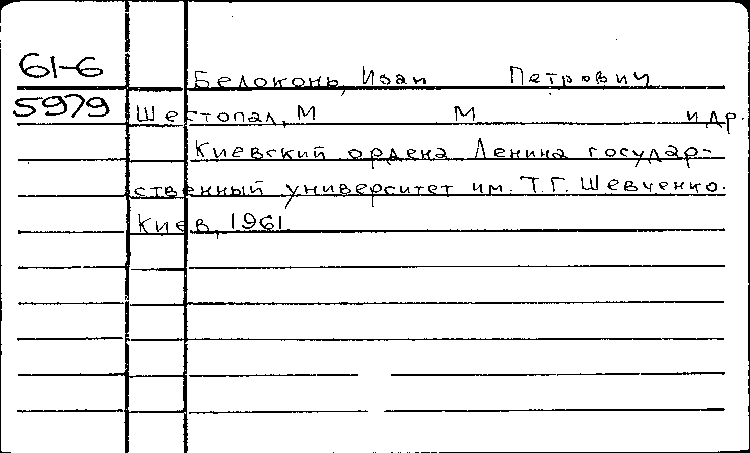 61-6 Белоконь, Иван Петрович
5979 Шестопал, М М и др.
Киевский ордена Ленина государ-
ственный университет им. Т.Г. Шевченко.
Киев, 1961.